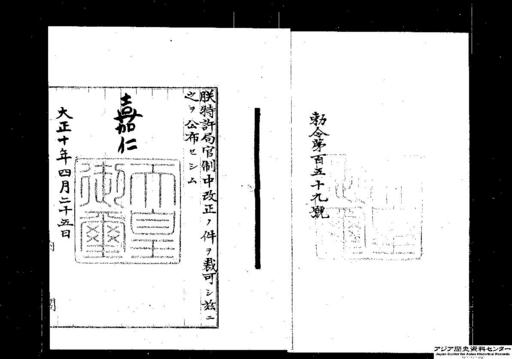 勅令第百五十九號
朕特許局官制中改正ノ件ヲ裁可シ茲ニ
之ヲ公布セシム
嘉仁
天皇御璽
大正十年四月二十五日
アジア歴史資料センター
Japan Center for Asian Historical Records